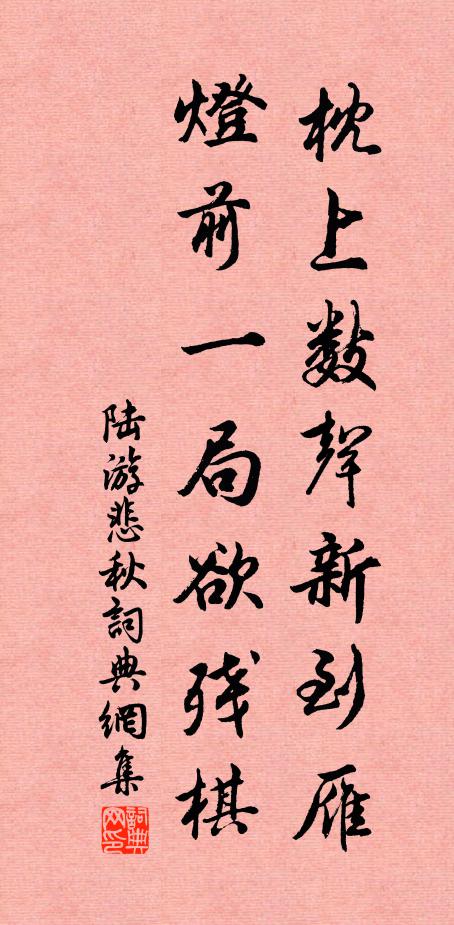 枕上数聲新到雁
燈前一局欲残棋
陆游悲秋詞典網集
詞典网印